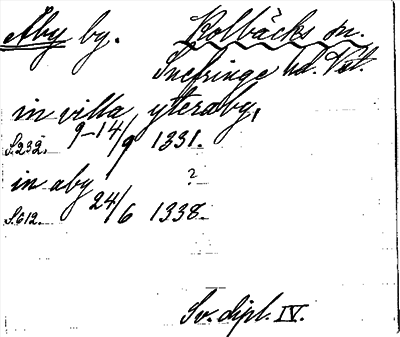 Åby by. Kolbäcks sn.
Snefringe hd. Vstm.
in villa yteraby,
S.232. 9-14/9 1331.
in aby ?
S.612. 24/6 1338.
Sv. dipl. IV.